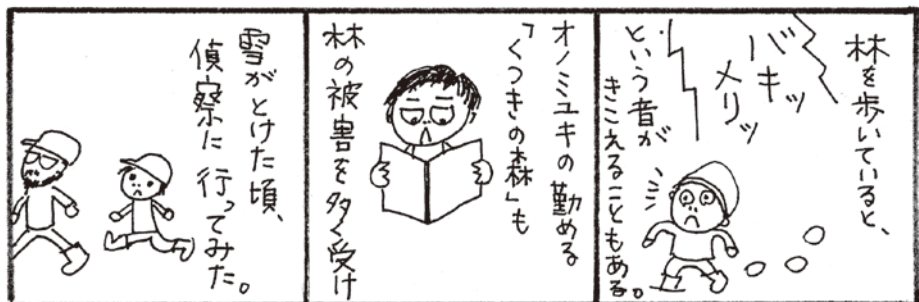 林を歩いていると、
バキッ
メリッ
という音が
きこえることもある。
オノミユキの勤める
「くつきの森」も
林の被害を多く受け
雪がとけた頃、
偵察に行ってみた。